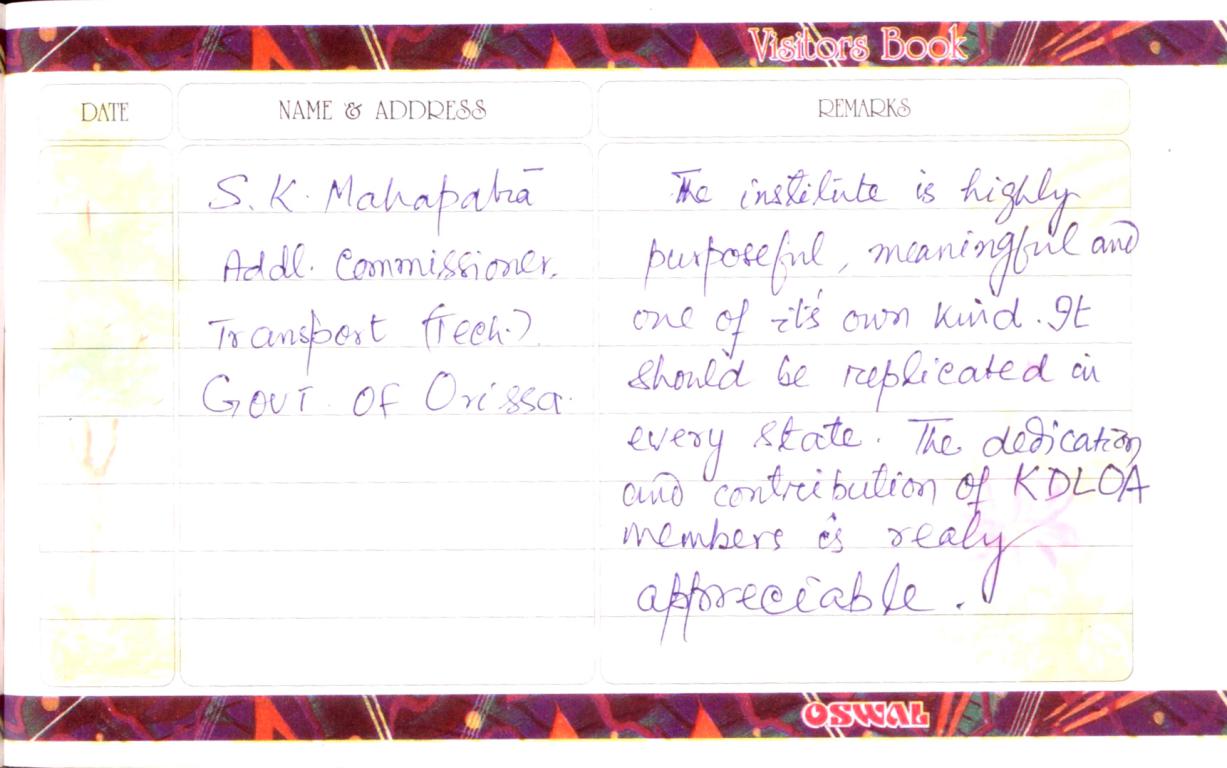 Visitors Book
DATE
NAME & ADDRESS
REMARKS
S. K. Mahapatra
Addl. Commissioner,
Transport (Tech.)
Govt. OF Orissa.
The institute is highly
purposeful, meaningful and
one of it's own kind. It
should be replicated in
every state. The dedication
and contribution of KDLOA
members is realy
appreciable.
OSWAL